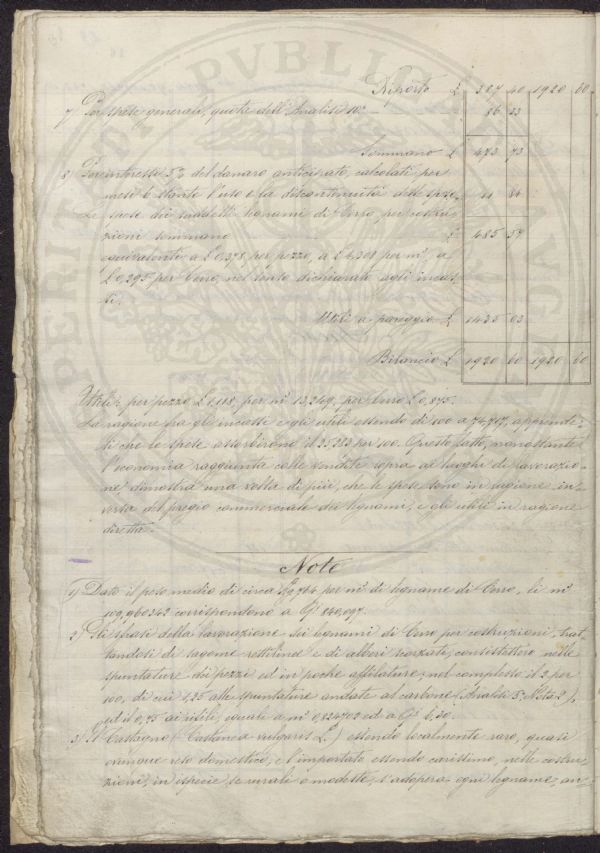 Riporto £ 387 40 1920 60
7) Per spese generali, quota dell'Analisi 10ª 86 33
Sommano £ 473 73
8 Per interesse 5% del danaro anticipato, calcolati per
mesi 6 stante l'uso e la discontinuità delle spese 11 84
Le spese dei suddetti legnami di Cerro, per costru-
zioni sommano £ 485 57
equivalenti a £ 0,378 per pezzo, a £ 4,308 per m³, a
£ 0,295 per Cerro, nel tanto dichiarati agli incas-
si.
Utili a pareggio £ 1435 03
Bilancio £ 1920 60 1920 60
Utili: per pezzo £ 1,118, per m³ 13,249, per Cerro £ 0,873.
La ragione fra gli incassi e gli utili essendo di 100 a 74,717, apprende-
si che le spese assorbirono il 25,283 per 100. Questo fatto, nonostante
l'economia raggiunta colle vendite sopra ai luoghi di lavorazio-
ne dimostra una volta di più, che le spese sono in ragione in-
versa del pregio commerciale dei legnami, e gli utili in ragione
diretta.
Note
1) Dato il peso medio di circa 0,764 per m³ di legname di Cerro, li m³
109,960342 corrispondono a Q.li 840,097.
2) Gli sfrasi della lavorazione dei legnami di Cerro per costruzioni, trat-
tandosi di sagome rettilinee e di alberi consistettero nelle
spuntature dei pezzi ed in poche affilature; nel complesso il 2 per
100, di cui 1,25 alle spuntature andate al carbone (Analisi 5ª Nota 2),
ed il 0,75 ai rifili, eguale a m³ 0,824702 ed a Q.li 6,30.
3) Il Castagno (Castanea vulgaris L.) essendo localmente raro, quasi
ovunque reso domestico, e l'importato essendo carissimo, nelle costru-
zioni, in ispecie se rurali o modeste, s'adopera ogni legname, an-